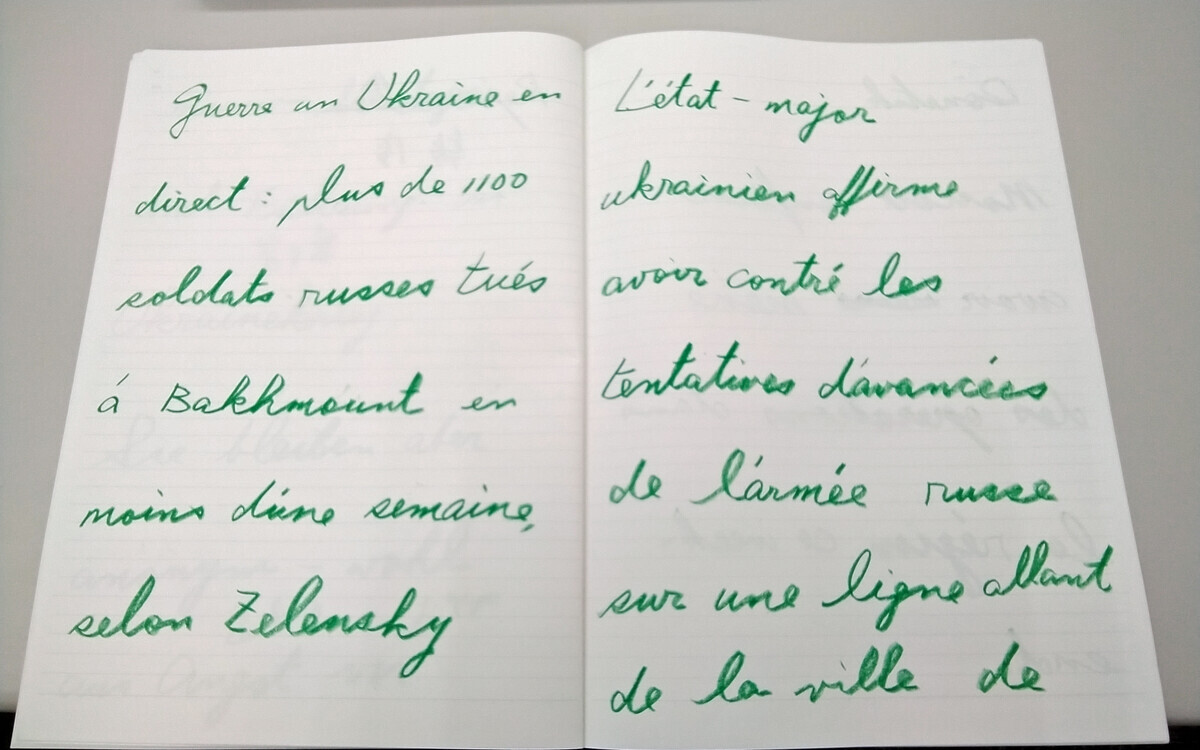 Guerre un Ukraine en
direct : plus de 1100
soldats russes tués
á Bakhmount en
moins d'une semaine,
selon Zelensky
L'état-major
ukrainien affirme
avoir contré les
tentatives d'avancées
de l'armée russe
sur une ligne allant
de la ville de